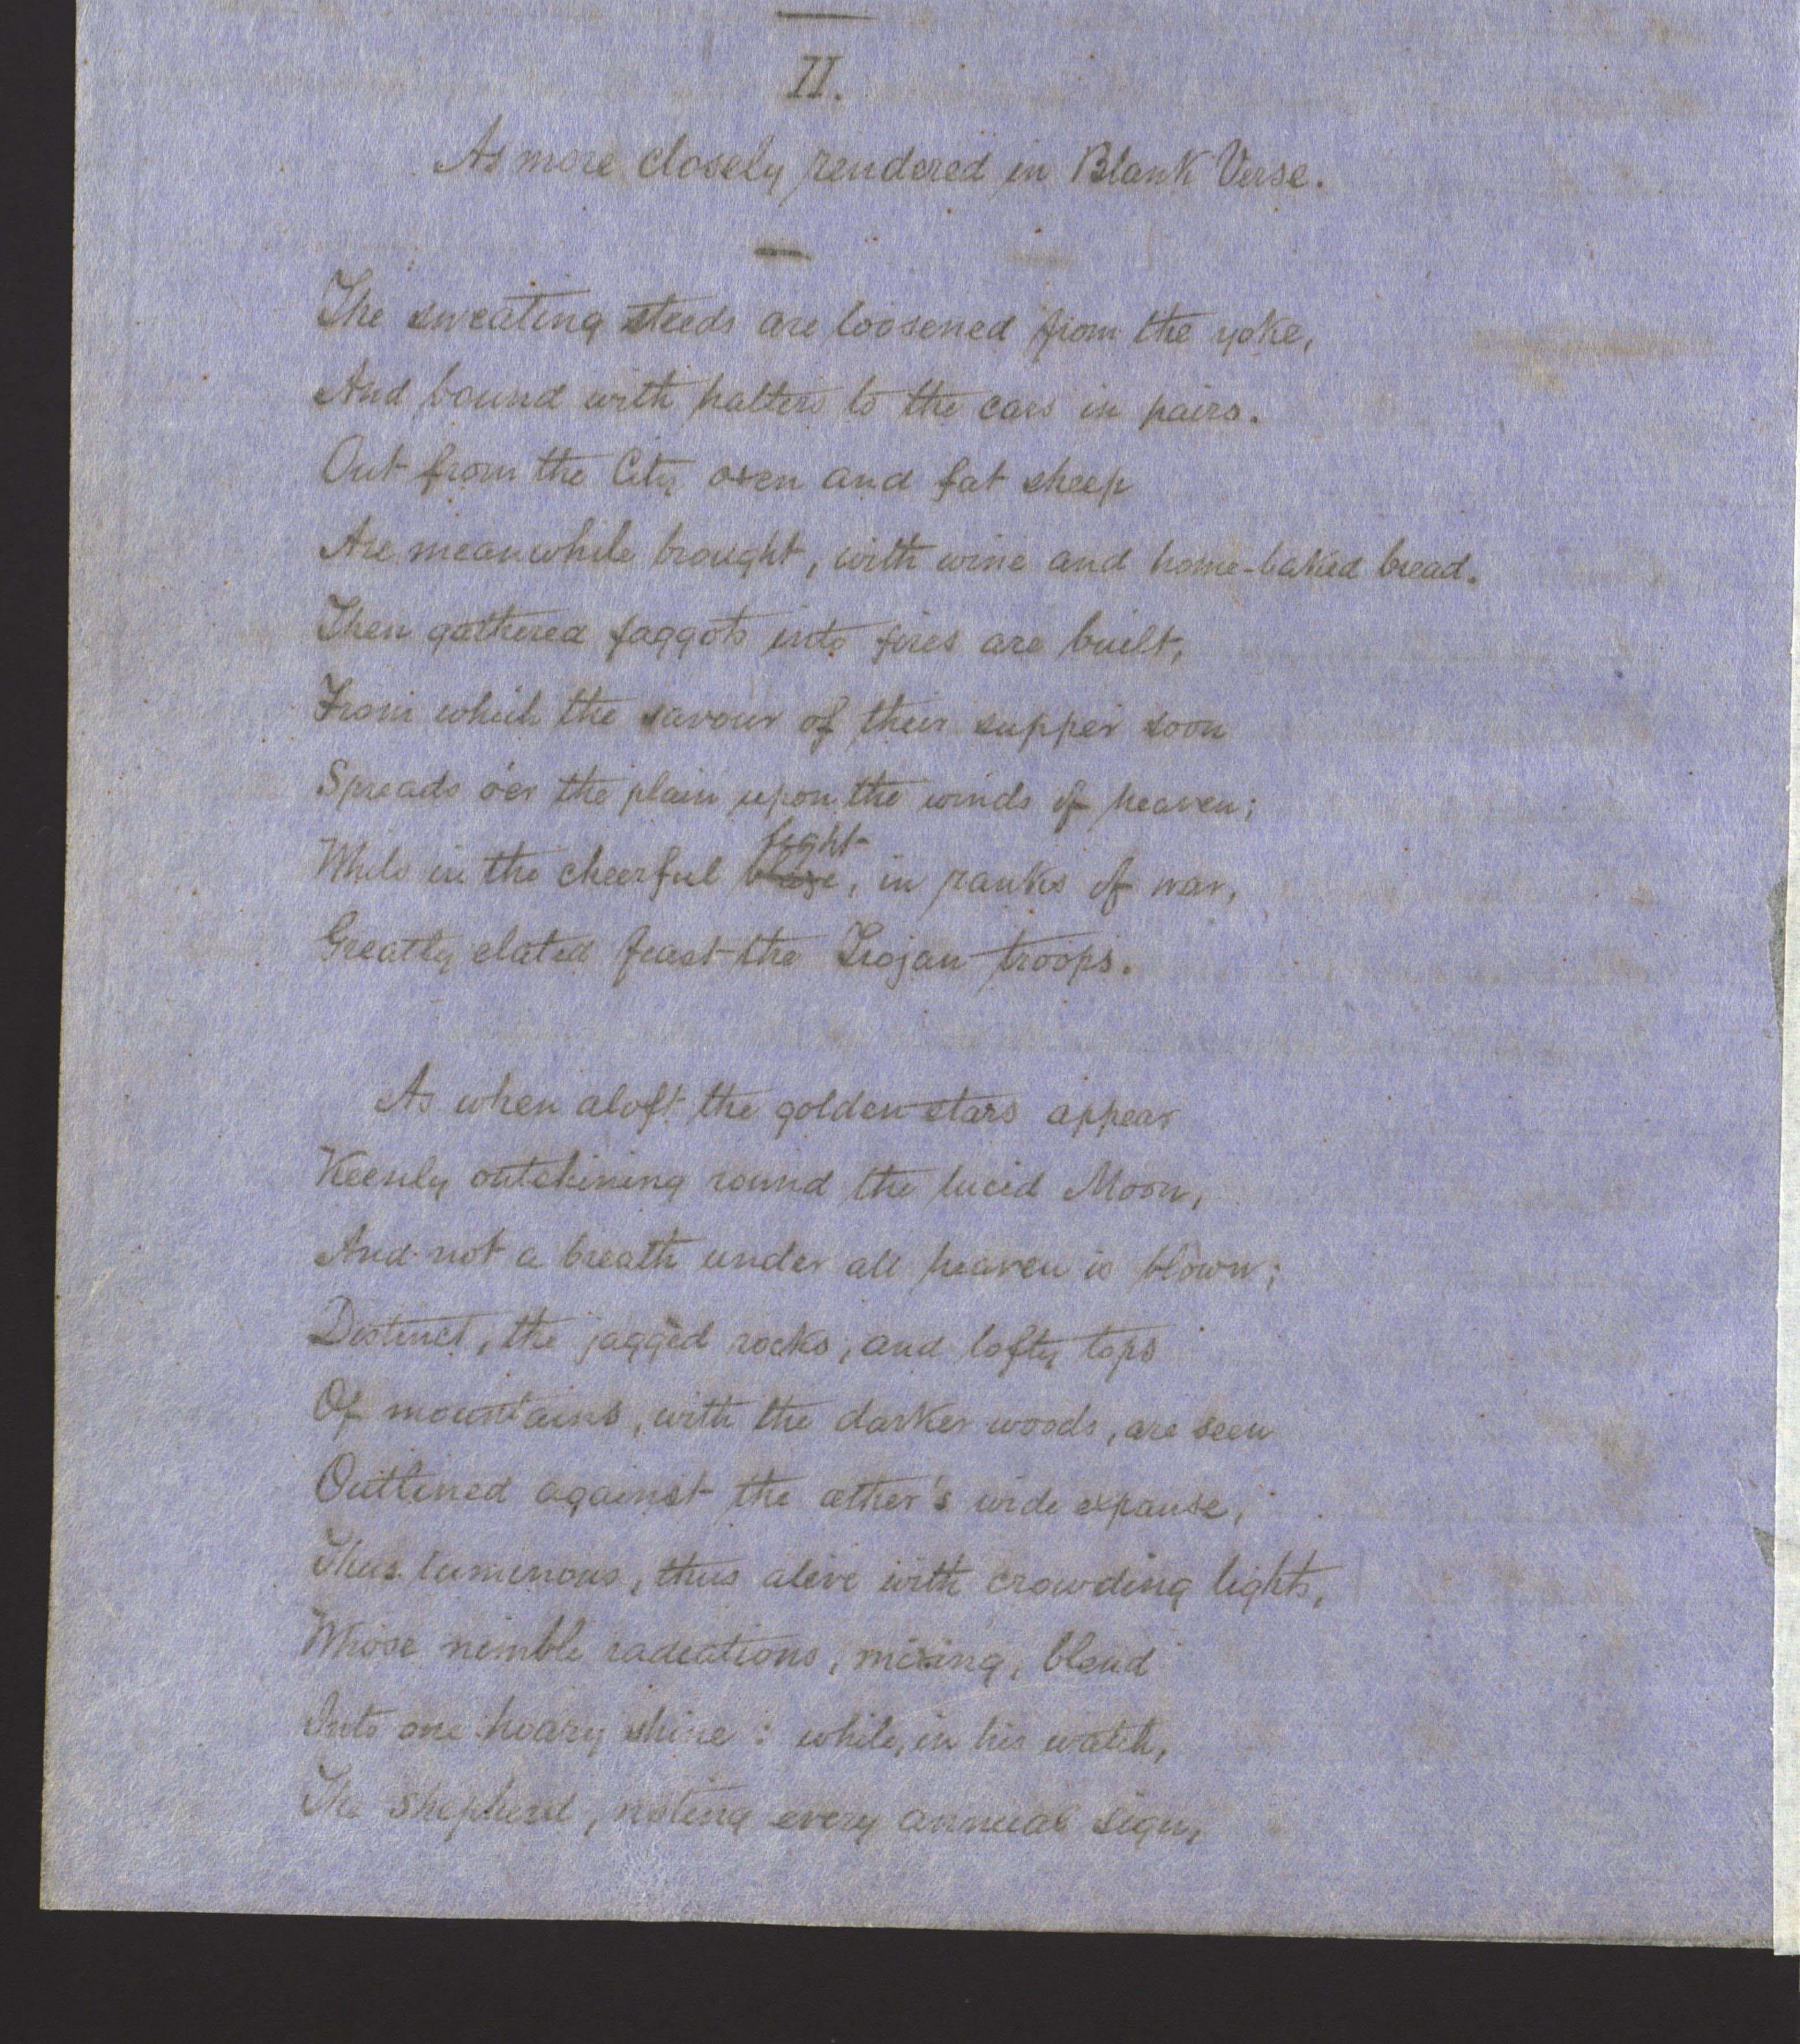 II.
As more closely rendered in Blank Verse.
The sweating steeds are loosened from the yoke,
And bound with halters to the cars in pairs.
Out from the City oxen and fat sheep
Are meanwhile brought, with wine and home-baked bread.
Then gathered faggots into fires are built,
From which the savour of their supper soon
Spreads o'er the plain upon the winds of heaven;
light
While in the cheerful blaze, in ranks of war,
Greatly elated feast the Trojan troops.
As when aloft the golden stars appear
Keenly outshining round the lucid Moon,
And not a breath under all heaven is blown;
Distinct, the jagged rocks, and lofty tops
Of mountains, with the darker woods, are seen
Outlined against the æther's wide expanse,
Thus luminous, thus alive with crowding lights,
Whose nimble radiations, mixing, blend
Into one hoary shine: while, in his watch,
The Shepherd, noting every annual sign,